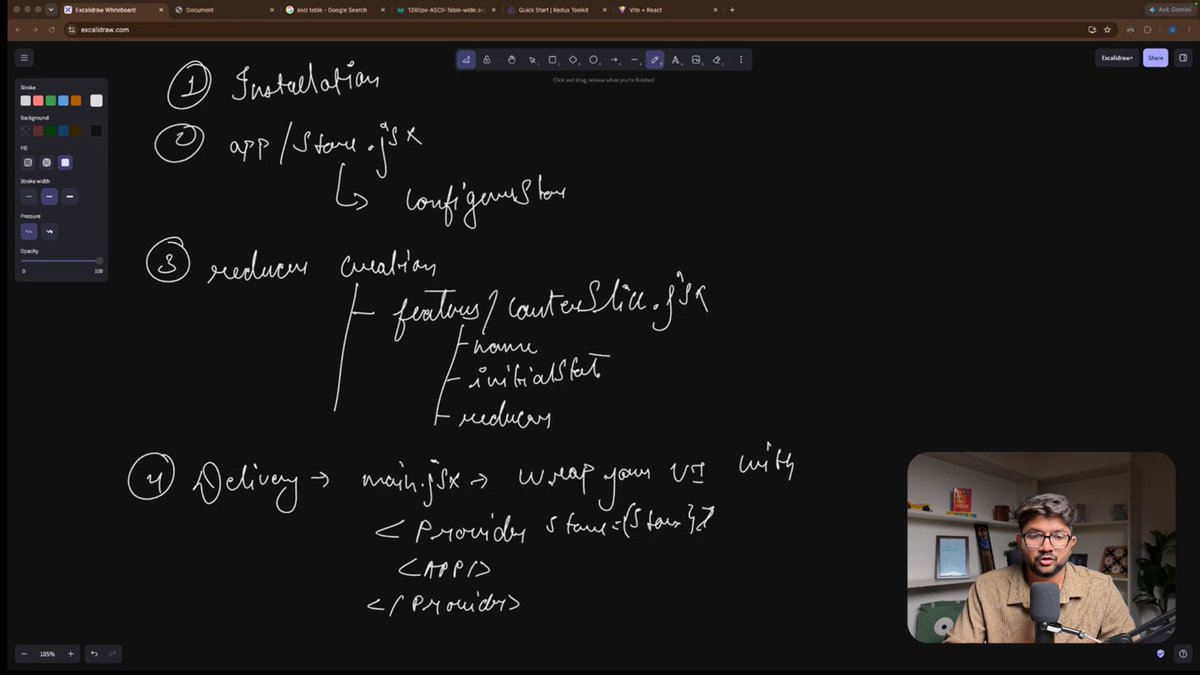 Excalidraw Whiteboard
Document
asci table - Google Search
1280px-ASCII-Table-wide.sv
Quick Start | Redux Toolkit
Vite + React
Ask Gemini
excalidraw.com
Excalidraw+
Share
Click and drag, release when you're finished
Stroke
Background
Fill
Stroke width
Pressure
Opacity
0 100
1 Installation
2 app/store.jsx
configureStore
3 reducer creation
features/counterSlice.jsx
name
initialState
reducers
4 Delivery → main.jsx → wrap your UI with
<Provider store={store}>
<APP/>
</Provider>
105%